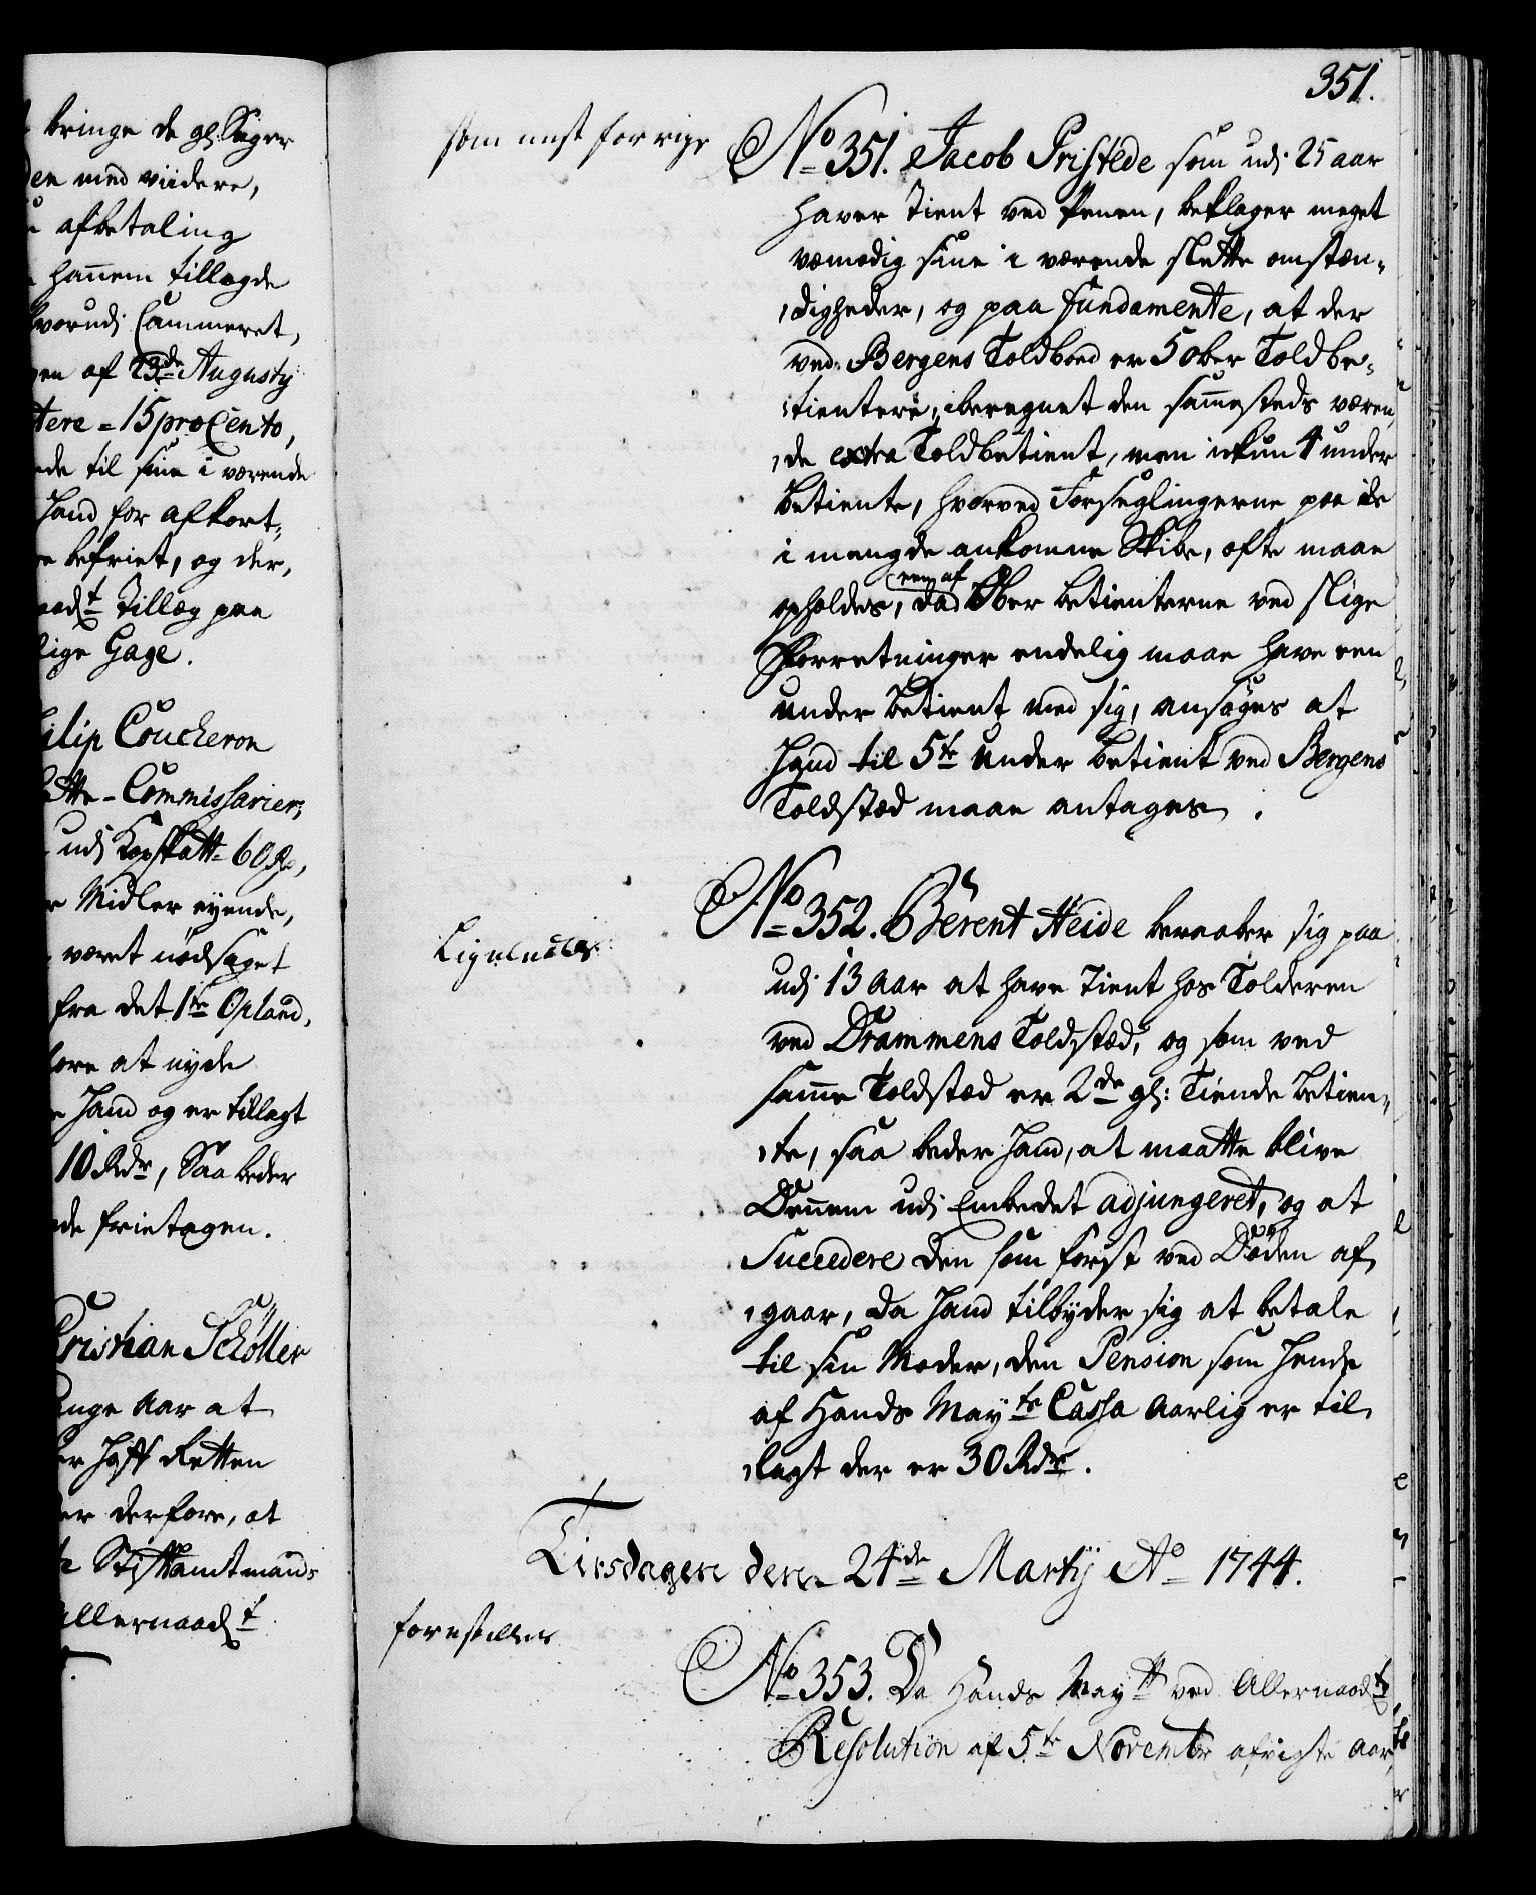 bringe de gl. Sager
den med viidere,
afbetaling
hannem tillagde
hvorudj Cammeret,
gen af 23de Augustj
tere = 15 pro Cento,
de til sine i værende
Hand for afkort¬
befriet, og der,
naadt. Tillæg paa
lige Gage.
ilip Coucheron
atte-Commissarier,
udj Kopskatt 60 Rd,
Midler eyende,
været nødsaget
fra det 1te Opland,
fore at nyde
Hand og er tillagt
10 Rdr, Saa beder
de frietagen.
Christian Schøller
ange Aar at
er Hoff Retten
er derfore, at
Stiftamtmands
Allernaadt
351.
som nest forrige
No 351. Jacob Pristede som udj 25 aar
haver Tient ved Penen, beklager meget
vemodig sine i værende slette omstæn¬
digheder, og paa fundamente, at der
ved Bergens Toldboed er 5 ober Toldbe¬
tientere, iberegnet den sammesteds væren
de extra Toldbetient, men ickun 4 under
betiente, hvorved Forseglingerne paa de
i mengde ankomne Skibe, ofte maae
een af
opholdes, da Ober betienterne ved slige
Forretninger endelig maae have een
under betient med sig, ansøges at
Hand til 5te under betient ved Bergens
Toldsted maae antages.
Ligeledes
No 352. Berent Heide beraaber sig paa
udj 13 aar at have Tient hos Tolderen
ved Drammens Toldsted, og som ved
samme Toldsted er 2de gl: Tiende betien¬
te, saa beder Hand, at maatte blive
Dennem udj Embedet adjungeret, og at
Succedere den som først ved Døden af
gaar, da Hand tilbyder sig at betale
til sin Moder, den Pension som Hende
af Hands Mayts Cassa aarlig er til
lagt der er 30 Rdr.
Tirsdagen den 24de Martij Ao 1744.
forestilles
No 353. Da Hands Maytt ved Allernaadt
Resolution af 5te Novembr afvigte aar